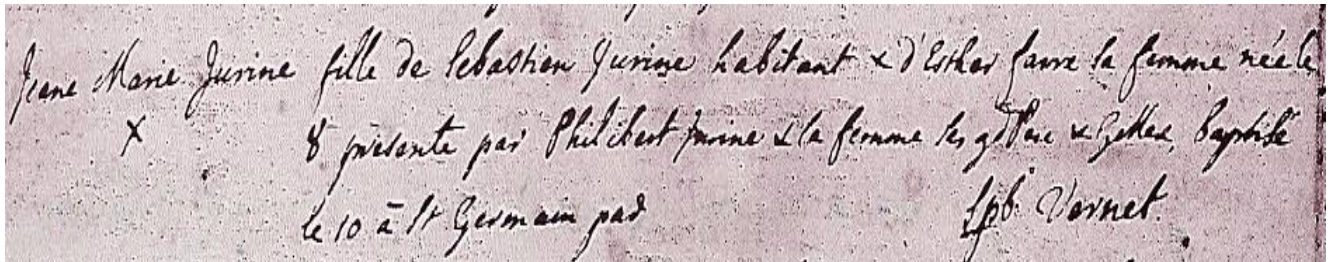 Jeane Marie Jurine fille de Sebastien Jurine habitant & d'Esther favre sa femme née le
X 8 présenté par Philibert Jurine & sa femme ses gd Pere & Baptisé
le 10 à St Germain par Vernet.